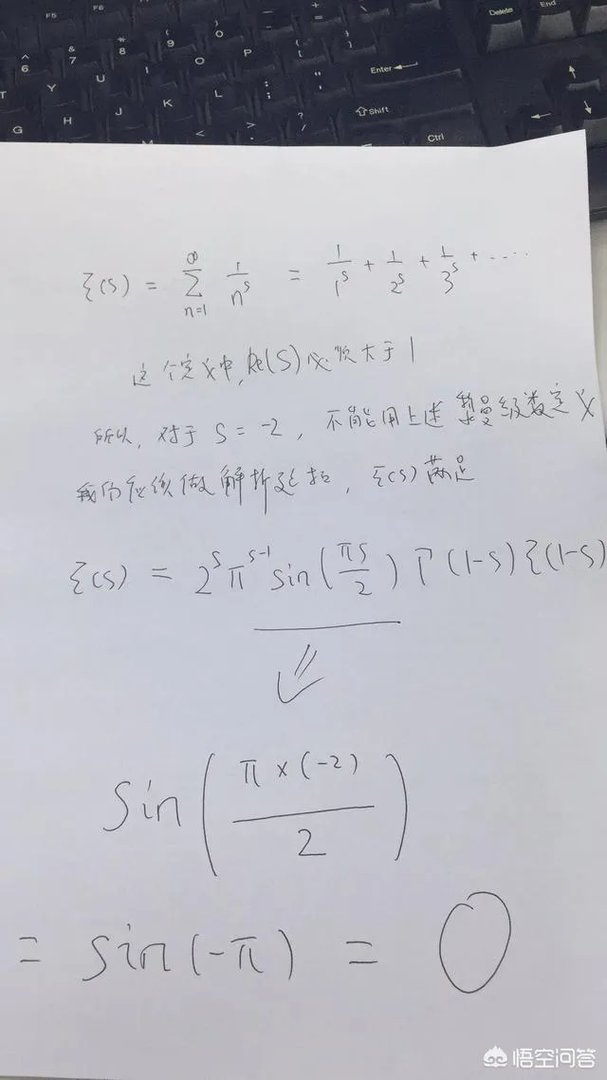 F5 F6
^ 6 & 7 * 8 ( 9 ) 0
Delete End
T Y U I O P
Enter
G H J K L
Shift
Ctrl
ξ(s) = ∑_{n=1}^{∞} 1/n^s = 1/1^s + 1/2^s + 1/3^s + ....
这个定义中, Re(S)必须大于1
所以, 对于 S = -2, 不能用上述黎曼级数定义
我们必须做解析延拓, ξ(s)满足
ξ(s) = 2^s π^{s-1} sin(πs/2) Γ(1-s) ξ(1-s)
sin(π×(-2)/2)
= sin(-π) = 0
悟空问答